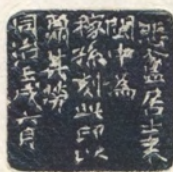 悲盦居士来
閩中為
稼孫刻此印以
其勞
同治壬戌六月